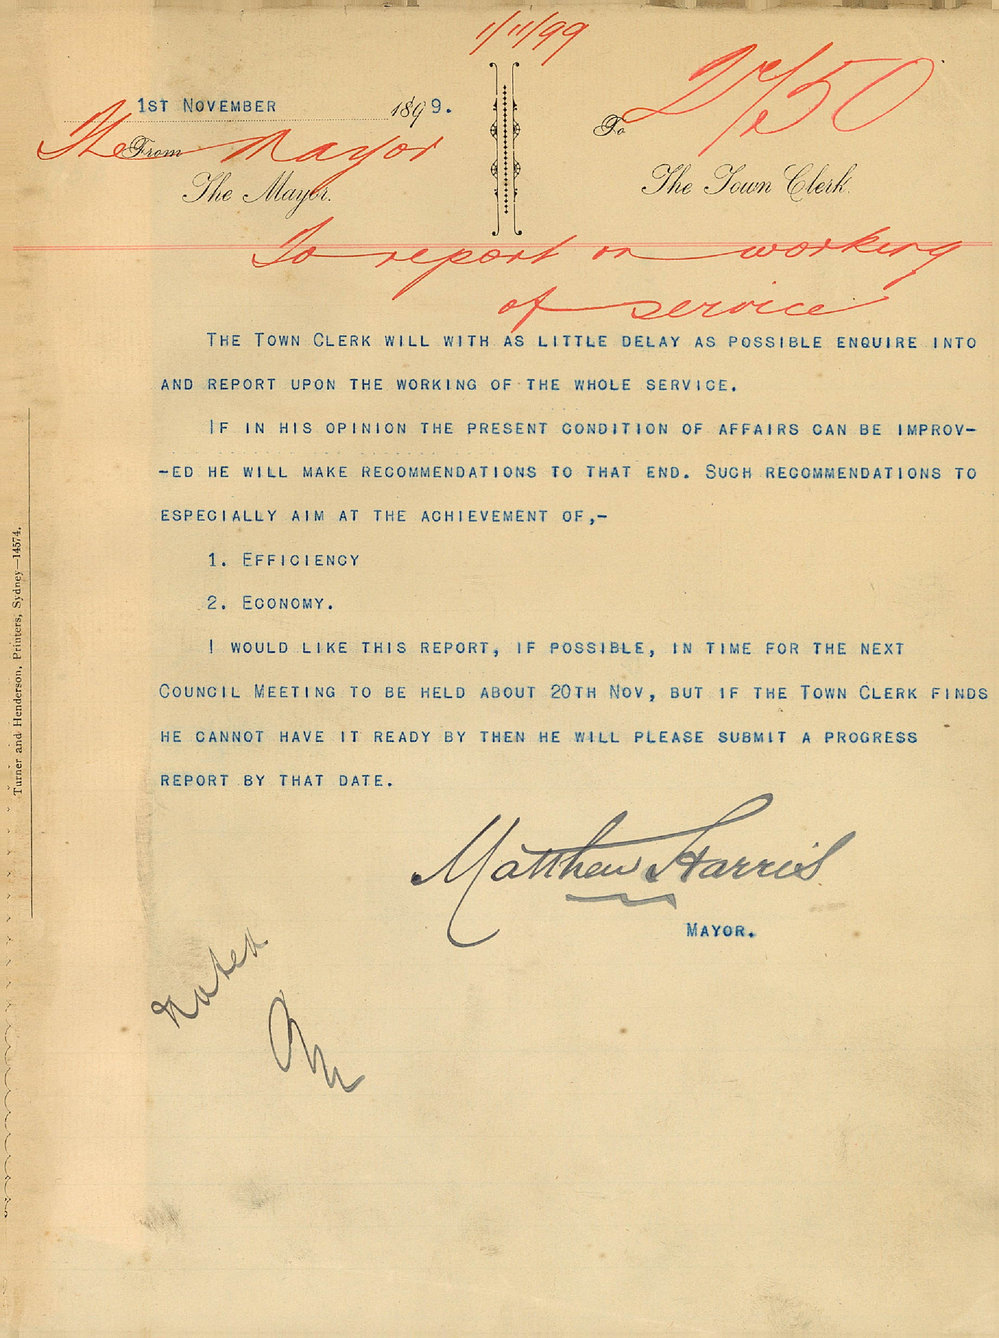 1/11/99
1ST NOVEMBER 1899.
The Mayor
From
The Mayor.
To
The Town Clerk.
To report on working
of service
THE TOWN CLERK WILL WITH AS LITTLE DELAY AS POSSIBLE ENQUIRE INTO
AND REPORT UPON THE WORKING OF THE WHOLE SERVICE.
IF IN HIS OPINION THE PRESENT CONDITION OF AFFAIRS CAN BE IMPROV-
-ED HE WILL MAKE RECOMMENDATIONS TO THAT END. SUCH RECOMMENDATIONS TO
ESPECIALLY AIM AT THE ACHIEVEMENT OF,-
1. EFFICIENCY
2. ECONOMY.
I WOULD LIKE THIS REPORT, IF POSSIBLE, IN TIME FOR THE NEXT
COUNCIL MEETING TO BE HELD ABOUT 20TH NOV, BUT IF THE TOWN CLERK FINDS
HE CANNOT HAVE IT READY BY THEN HE WILL PLEASE SUBMIT A PROGRESS
REPORT BY THAT DATE.
Matthew Harris
MAYOR.
Noted
Turner and Henderson, Printers, Sydney—14574.